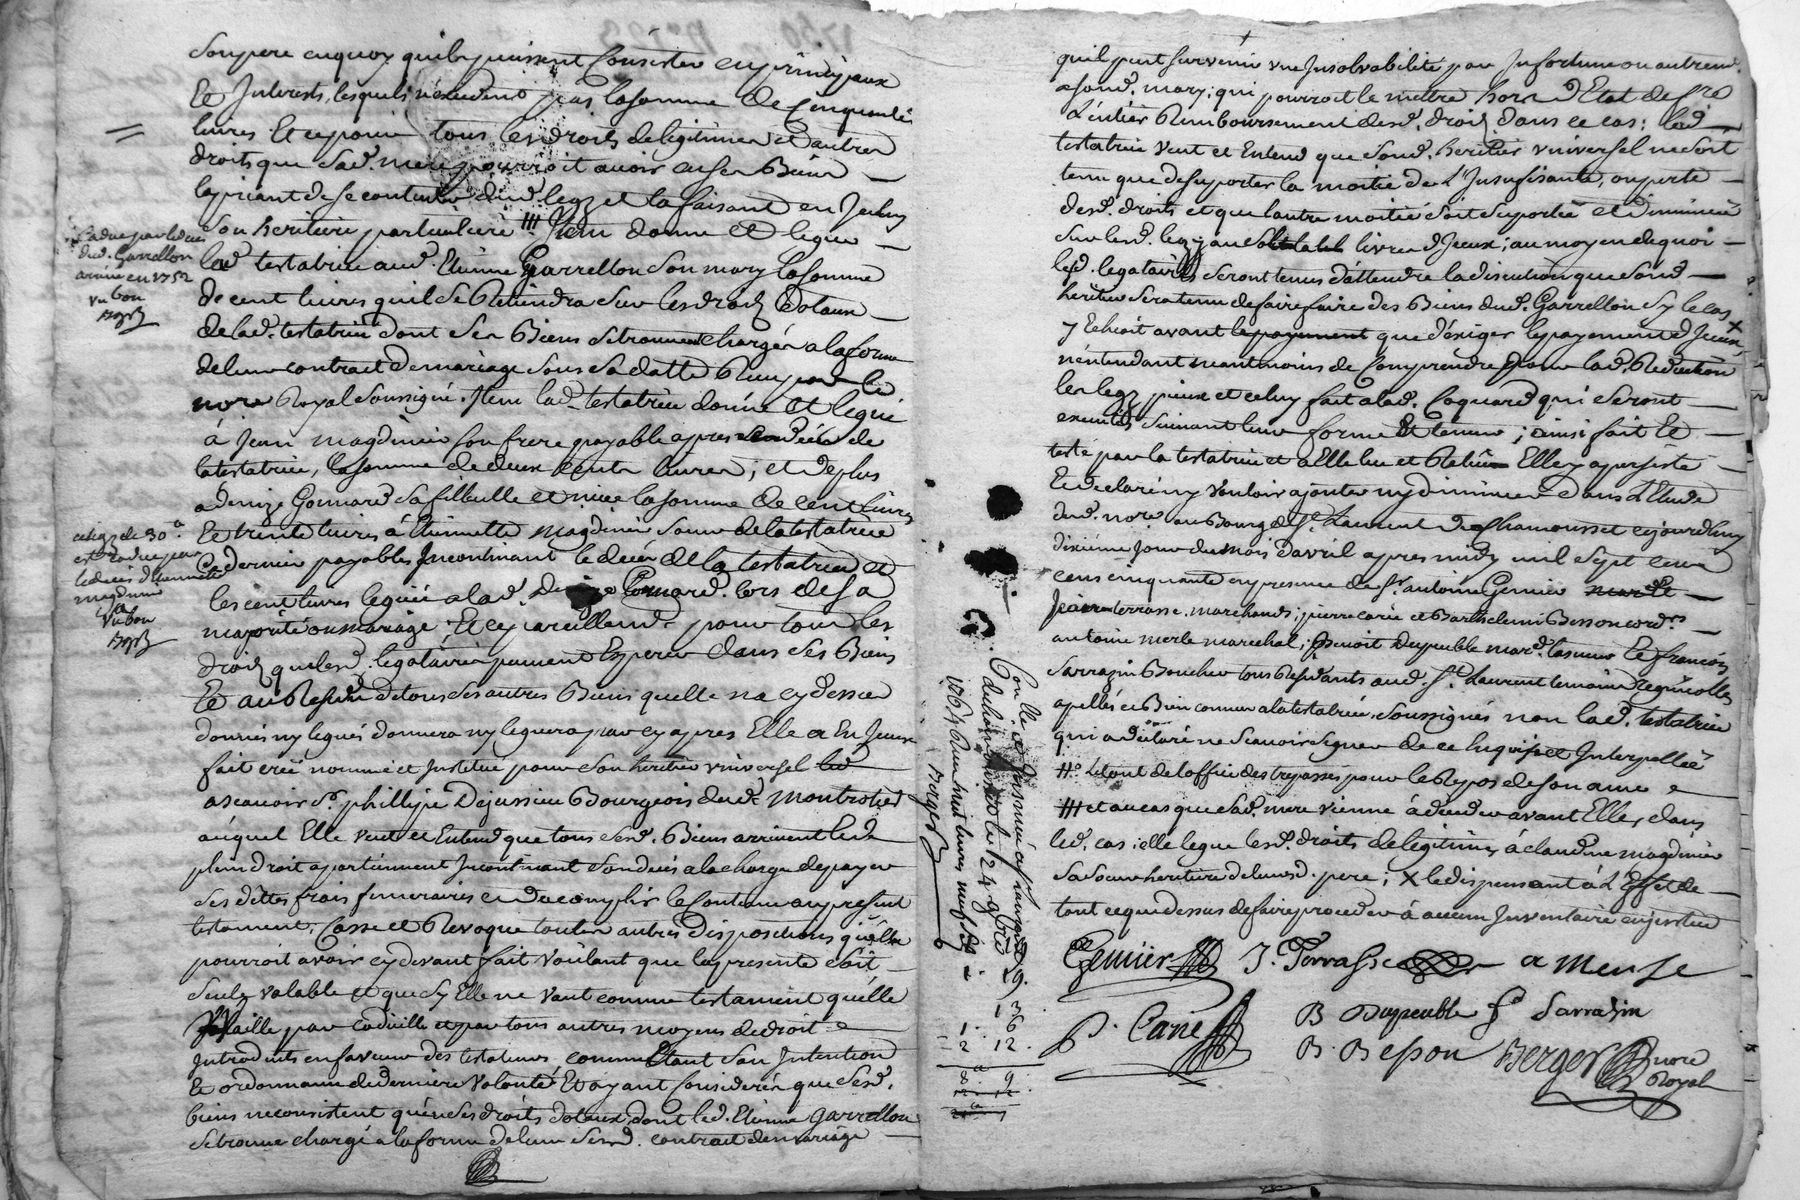 Son pere en quoy quils puissent Consister en principaux
Et Interests, lesquels n'excedent pas la somme de Cinquante
livres Et ce pour tous les droits de legitime et autres
droits que sad. mere pourroit avoir en ses Biens
la priant de se contenter dud. legz et la faisant en Jceluy
son heritiere particuliere /// Jtem donne et legue
lad. testatrice aud. Etienne Garrellon son mary la somme
de cent livres quil se Retiendra sur les droits dotaux
de lad. testatrice dont ses Biens se trouvent chargés a la forme
de leur contract de mariage sous sa datte Reçu par led
nore Royal soussigné. Jtem lad. testatrice donne Et legue
à Jean magdinier son frere payable apres le decés de
la testatrice, la somme de deux cents livres; et de plus
a denize Gonnard sa filleulle et niece la somme de cent livres
Et trente livres à Etiennette magdinier soeur de la testatrice
Ce dernier payables Jncontinant le decés de la testatrice et
les cent livres legués a lad. Denize Gonnard lors de sa
majorité ou mariage Et ce pareillemt pour tous les
droits que lesd. legataires peuvent Esperer dans ses Biens
Et au Residu de tous ses autres Biens quelle na cy dessus
donnés ny legués donnera ny leguera par cy apres Elle a En Jceux
fait créé nommé et Jnstitué pour son heritier universel
a scavoir Sr. phillipe Dejussieu Bourgeois dud. Montrotier
auquel Elle veut et Entend que tous sesd. Biens arrivent et de
plein droit apartiennent Jncontinant son decés a la charge de payer
ses dettes frais funeraires et d'acomplir le contenu au present
testament, Casse et Revoque toutes autres dispositions qu'elle
pourroit avoir cy devant fait voulant que la presente soit
seule valable et que sy Elle ne vaut comme testament quelle
vaille par codicille et par tous autres moyens de droit
Introduits en faveur des testateurs comme Etant son Jntention
Et ordonnance de derniere volonté Et ayant Considerés que sesd.
biens ne consistent qu'en ses droits dotaux dont led. Etienne Garrellon
se trouve chargé a la forme de leur susd. contract de mariage
Caduc par le deces
dud. Garrellon
arrivé en 1752
vu bon
Bgr
ce legz de 30 ll
est caduc par
le deces d'Etiennette
magdinier
vu bon
Bgr
quil peut survenir une Jnsolvabilité par Jnfortune ou autremt
a sond. mary; qui pourroit le mettre hors d'Etat de fre
L'entier Remboursement desd. droits dans ce cas; lad.
testatrice veut et Entend que sond. heritier universel ne soit
tenu que de suporter la moitié de L'Jnsufisante, ou perte
desd. droits et que lautre moitié soit suportée et diminuée
sur lesd. legz livres d'Jceux; au moyen de quoi
lesd. legataires seront tenus d'attendre la discution que sond.
heritier sera tenu de faire faire des Biens dud. Garrellon sy le cas
y Echeoit avant le payement que d'exiger le payement d'Jceux X
n'entendant neantmoins de Comprendre pour lad. Reduction
les legz pieux et celuy fait a lad. Coquard qui seront
executés suivant leur forme Et teneur; ainsi fait Et
testé par la testatrice et a Elle lu et Relu Elle y a persisté
Et declaré n'y vouloir ajouter ny diminuer dans L'Etude
dud. nore au Bourg de St. Laurent de Chamousset ce jourdhuy
dixiéme jour du mois d'avril apres midy mil sept cent
cens cinquante en presence de Sr. antoine Gemier mard Et
Jean terrasse marchands; pierre carie et Barthelemi Besson cord.rs
antoine merle marechal; Benoit Dupeuble mard. tanneur Et francois
Sarrazin Boucher tous Residants aud. St. Laurent temoins Requis et
apellés et Bien connus a la testatrice soussignés non lad. testatrice
qui a declaré ne scavoir signer de ce Enquise et Jnterpellée
// Le tout de loffice des trepassés pour le Repos de son ame
/// et au cas que sad. mere vienne à deceder avant Elle, dans
led. cas; elle legue lesd. droits de legitime, à claudine magdinier
sa soeur heritiere de leursd. pere; X le dispensant à L'Effet de
tout ce que dessus de faire proceder à aucun Jnventaire en justice
Gemier J. Terrasse a merle
P. Carié B Dupeuble f. Sarrazin
B. Besson Berger nore
Royal
Conllé et Jnsinué a
le 24 9bre
1764 Reçu huit livres neuf s.
Berger
13
1. 6
2 12.
8. 9